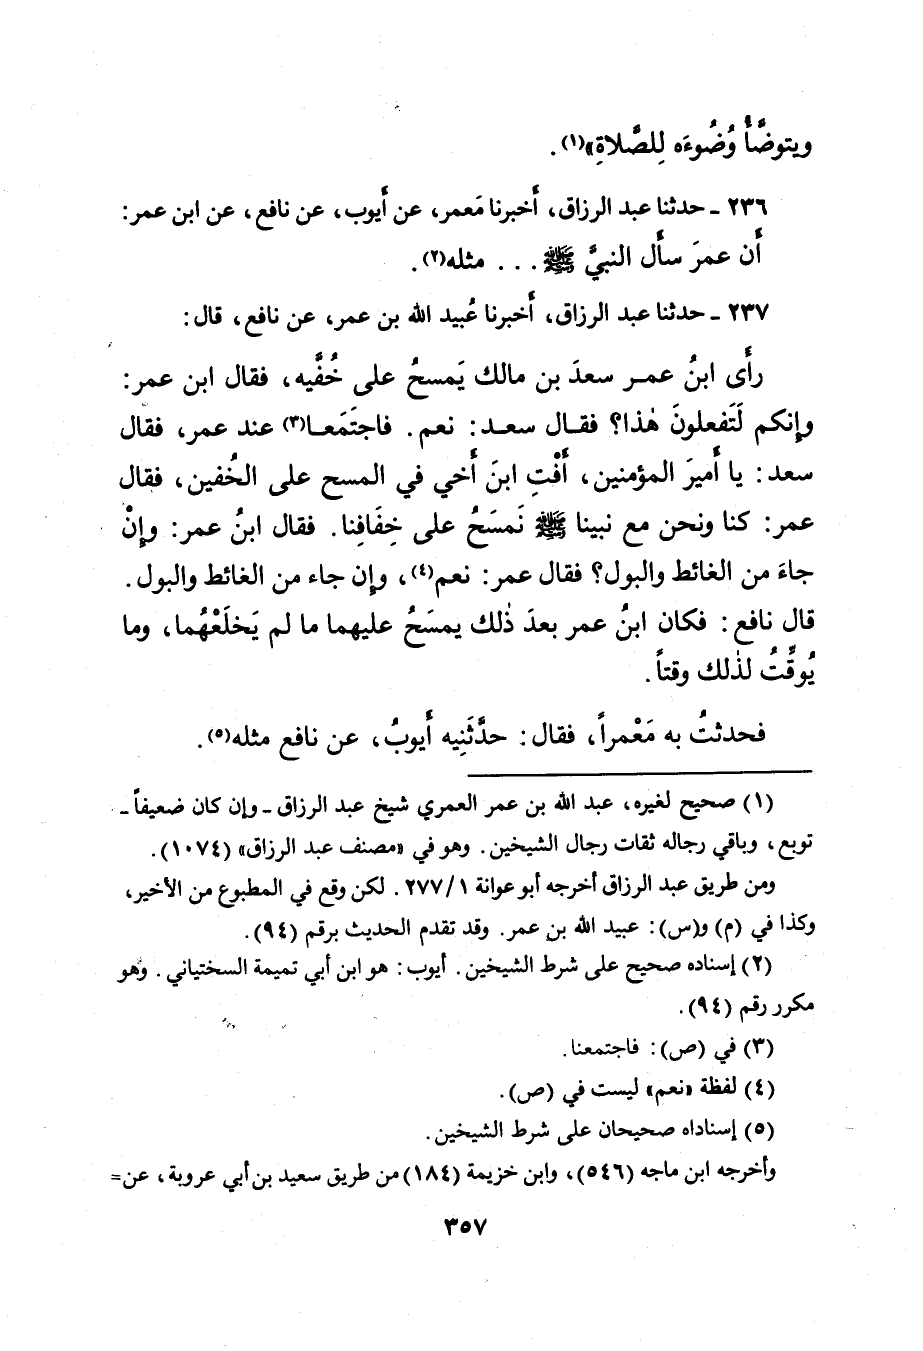 ويتوضَّأُ وُضُوءَه لِلصَّلاةِ»(١).
٢٣٦ ـ حدثنا عبد الرزاق، أخبرنا مَعمر، عن أيوب، عن نافع، عن ابن عمر:
أن عمرَ سأل النبيَّ ﷺ . . . مثله(٢).
٢٣٧ ـ حدثنا عبد الرزاق، أخبرنا عُبيد الله بن عمر، عن نافع، قال:
رأى ابنُ عمـر سعدَ بن مالك يَمسحُ على خُفَّيه، فقال ابن عمر:
وإنكم لَتَفعلونَ هٰذا؟ فقـال سعـد: نعم. فاجتَمَعـا(٣) عند عمر، فقال
سعد: يا أَميرَ المؤمنين، أَفْتِ ابنَ أَخي في المسح على الخُفين، فقال
عمر: كنا ونحن مع نبينا ﷺ نَمسَحُ على خِفَافِنا. فقال ابنُ عمر: وإنْ
جاءَ من الغائط والبول؟ فقال عمر: نعم(٤)، وإن جاء من الغائط والبول.
قال نافع: فكان ابنُ عمر بعدَ ذٰلك يمسَحُ عليهما ما لم يَخلَعْهُما، وما
يُوقِّتُ لذٰلك وقتاً.
فحدثتُ به مَعْمراً، فقال: حدَّثَنِيه أَيوبُ، عن نافع مثله(٥).
(١) صحيح لغيره، عبد الله بن عمر العمري شيخ عبد الرزاق ـ وإن كان ضعيفاً ـ
توبع، وباقي رجاله ثقات رجال الشيخين. وهو في «مصنف عبد الرزاق» (١٠٧٤).
ومن طريق عبد الرزاق أخرجه أبو عوانة ٢٧٧/١. لكن وقع في المطبوع من الأخير،
وكذا في (م) و(س): عبيد الله بن عمر. وقد تقدم الحديث برقم (٩٤).
(٢) إسناده صحيح على شرط الشيخين. أيوب: هو ابن أبي تميمة السختياني. وهو
مكرر رقم (٩٤).
(٣) في (ص): فاجتمعنا.
(٤) لفظة «نعم» ليست في (ص).
(٥) إسناداه صحيحان على شرط الشيخين.
وأخرجه ابن ماجه (٥٤٦)، وابن خزيمة (١٨٤) من طريق سعيد بن أبي عروبة، عن=
٣٥٧